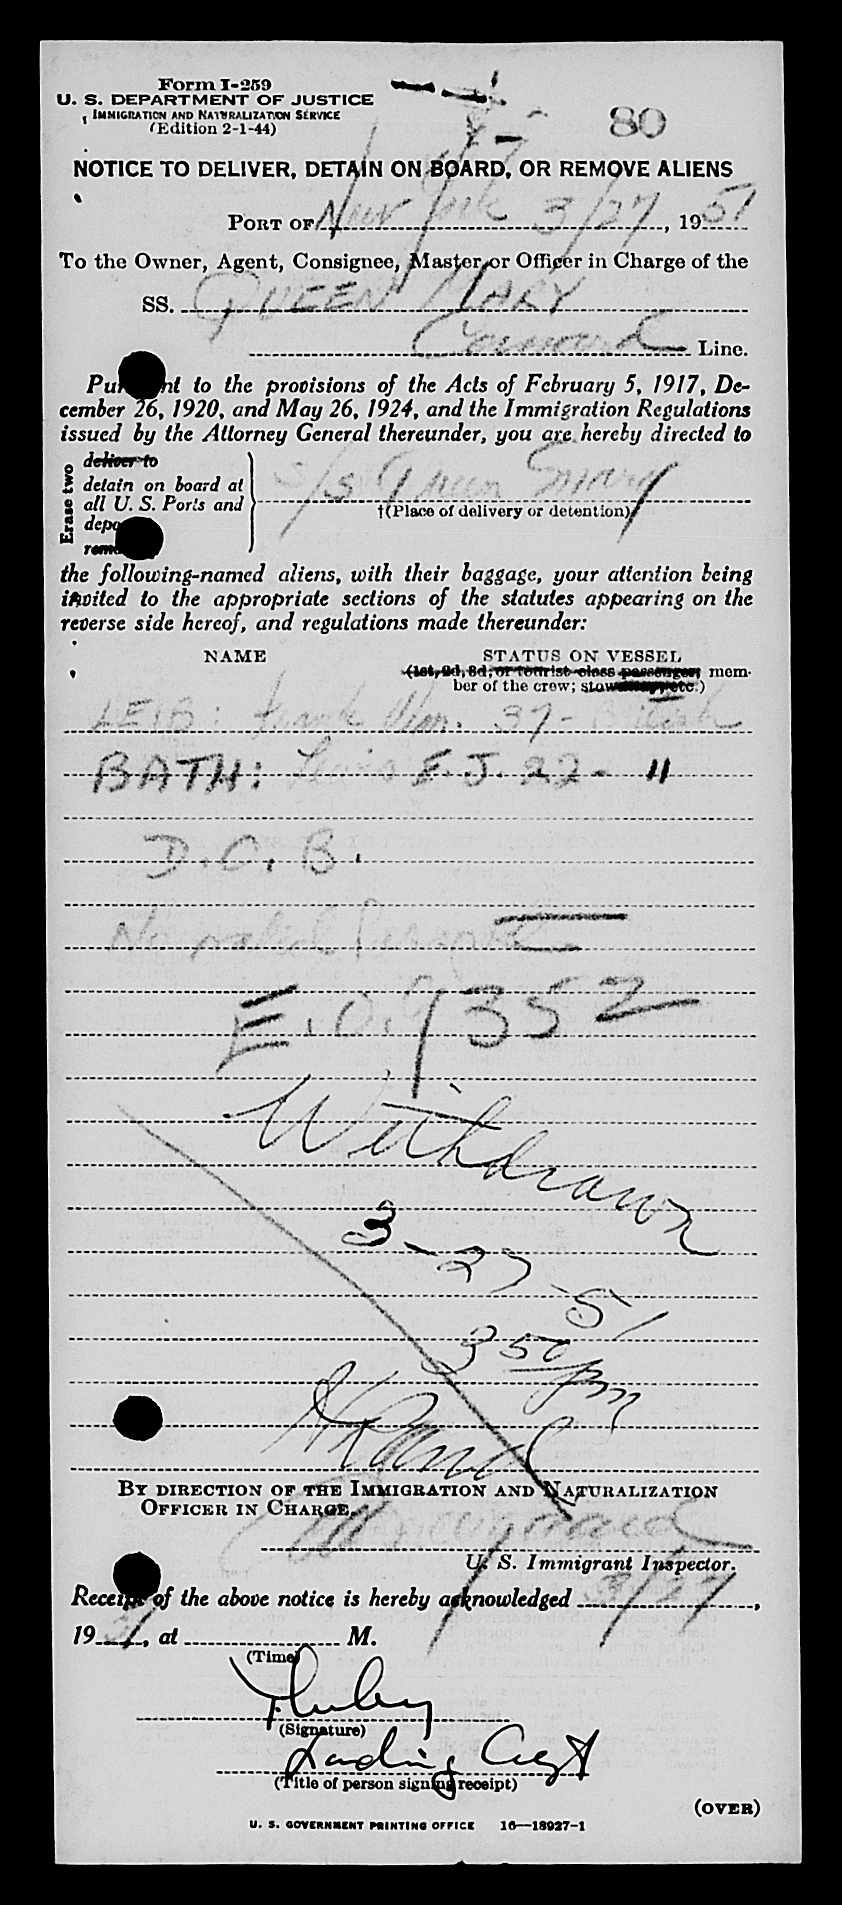 Form I-259
80
U. S. DEPARTMENT OF JUSTICE
IMMIGRATION AND NATURALIZATION SERVICE
(Edition 2-1-44)
NOTICE TO DELIVER, DETAIN ON BOARD, OR REMOVE ALIENS
PORT OF New York 3/27, 1951
To the Owner, Agent, Consignee, Master or Officer in Charge of the
SS. QUEEN MARY
Cunard Line.
Pursuant to the provisions of the Acts of February 5, 1917, De-
cember 26, 1920, and May 26, 1924, and the Immigration Regulations
issued by the Attorney General thereunder, you are hereby directed to
Erase two
deliver to
detain on board at
all U. S. Ports and
s/s Queen Mary
†(Place of delivery or detention)
the following-named aliens, with their baggage, your attention being
invited to the appropriate sections of the statutes appearing on the
reverse side hereof, and regulations made thereunder:
NAME STATUS ON VESSEL
(1st, 2d, 3d, or tourist class passenger, mem-
ber of the crew; stowaway, etc.)
LEIB: Frank Wm. 37 - British
BATH: Lewis E. J. 22 - "
D. O. B.
No valid
E.O. 9352
Withdrawn
3-27-51
3 50 pm
BY DIRECTION OF THE IMMIGRATION AND NATURALIZATION
OFFICER IN CHARGE,
U. S. Immigrant Inspector.
Receipt of the above notice is hereby acknowledged 3/27,
1951, at M.
(Time)
(Signature)
Landing Agt
(Title of person signing receipt)
(OVER)
U. S. GOVERNMENT PRINTING OFFICE 16—18927-1